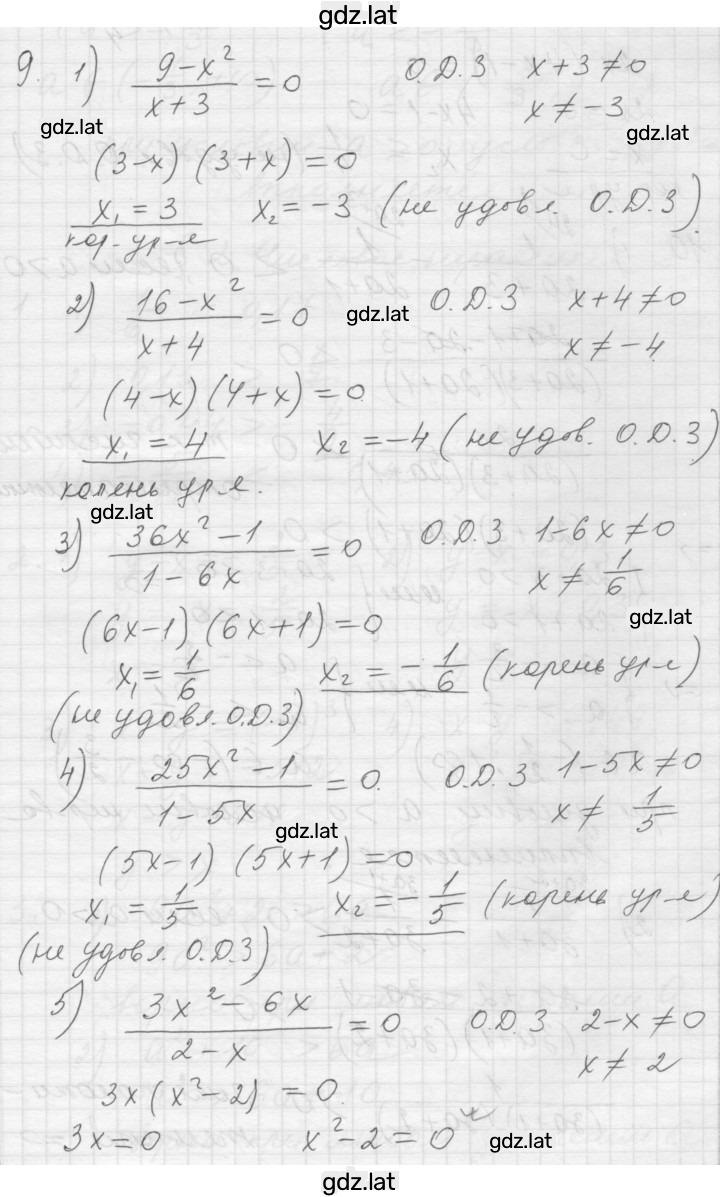 gdz.lat
9. 1) (9-x²)/(x+3) = 0 О.Д.З x+3≠0
x≠-3
gdz.lat
gdz.lat
(3-x)(3+x)=0
x₁=3 x₂=-3 (не удовл. О.Д.З)
кор. ур-я
2) (16-x²)/(x+4) = 0 gdz.lat О.Д.З x+4≠0
x≠-4
(4-x)(4+x)=0
x₁=4 x₂=-4 (не удов. О.Д.З)
корень ур-я.
gdz.lat
3) (36x²-1)/(1-6x) = 0 О.Д.З 1-6x≠0
x≠1/6
gdz.lat
(6x-1)(6x+1)=0
x₁=1/6 x₂=-1/6 (корень ур-я)
(не удовл. О.Д.З)
4) (25x²-1)/(1-5x) = 0. О.Д.З 1-5x≠0
x≠1/5
gdz.lat
(5x-1)(5x+1)=0
x₁=1/5 x₂=-1/5 (корень ур-я)
(не удовл. О.Д.З)
5) (3x²-6x)/(2-x) = 0 О.Д.З 2-x≠0
x≠2
3x(x²-2)=0.
3x=0 x²-2=0 gdz.lat
gdz.lat